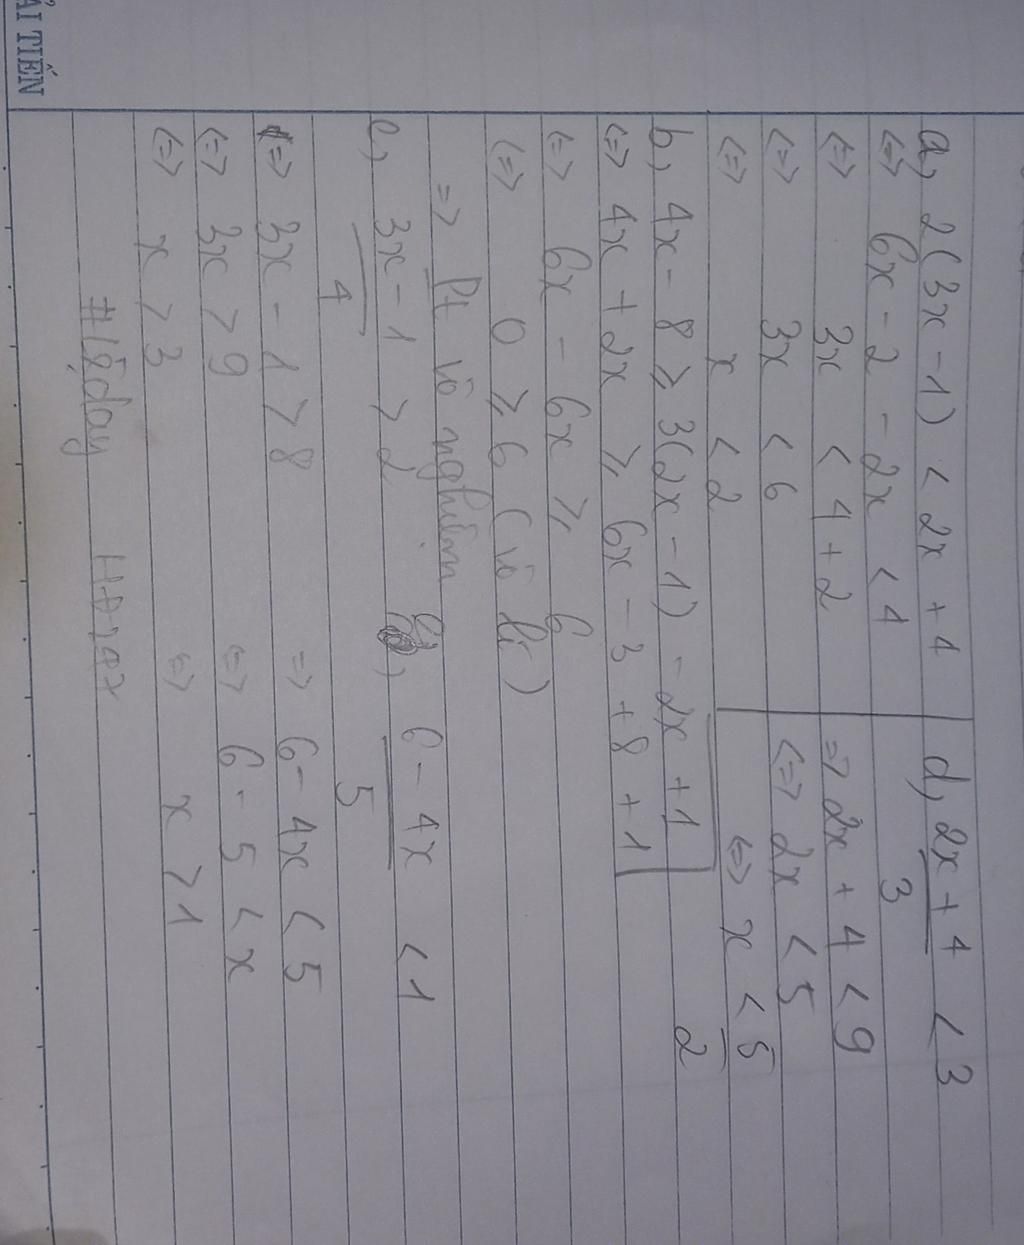 ẢI TIẾN
a, 2(3x - 1) < 2x + 4
<=> 6x - 2 - 2x < 4
<=> 3x < 4 + 2
<=> 3x < 6
<=> x < 2
d, 2x + 4 / 3 < 3
=> 2x + 4 < 9
<=> 2x < 5
<=> x < 5 / 2
b, 4x - 8 ≥ 3(2x - 1) - 2x + 1
<=> 4x + 2x ≥ 6x - 3 + 8 + 1
<=> 6x - 6x ≥ 6
<=> 0 ≥ 6 (vô lí)
=> Pt vô nghiệm
c, 3x - 1 / 4 > 2
<=> 3x - 1 > 8
<=> 3x > 9
<=> x > 3
e, 6 - 4x / 5 < 1
=> 6 - 4x < 5
<=> 6 - 5 < x
<=> x > 1